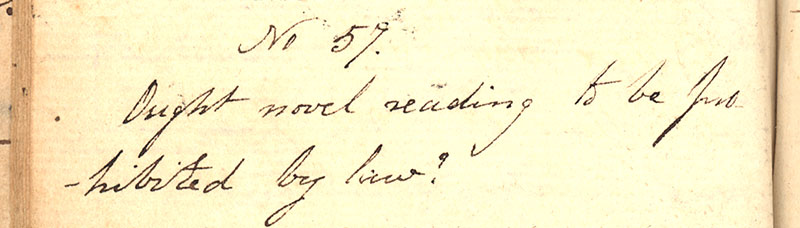 No 57.
Ought novel reading to be pro
-hibited by law?